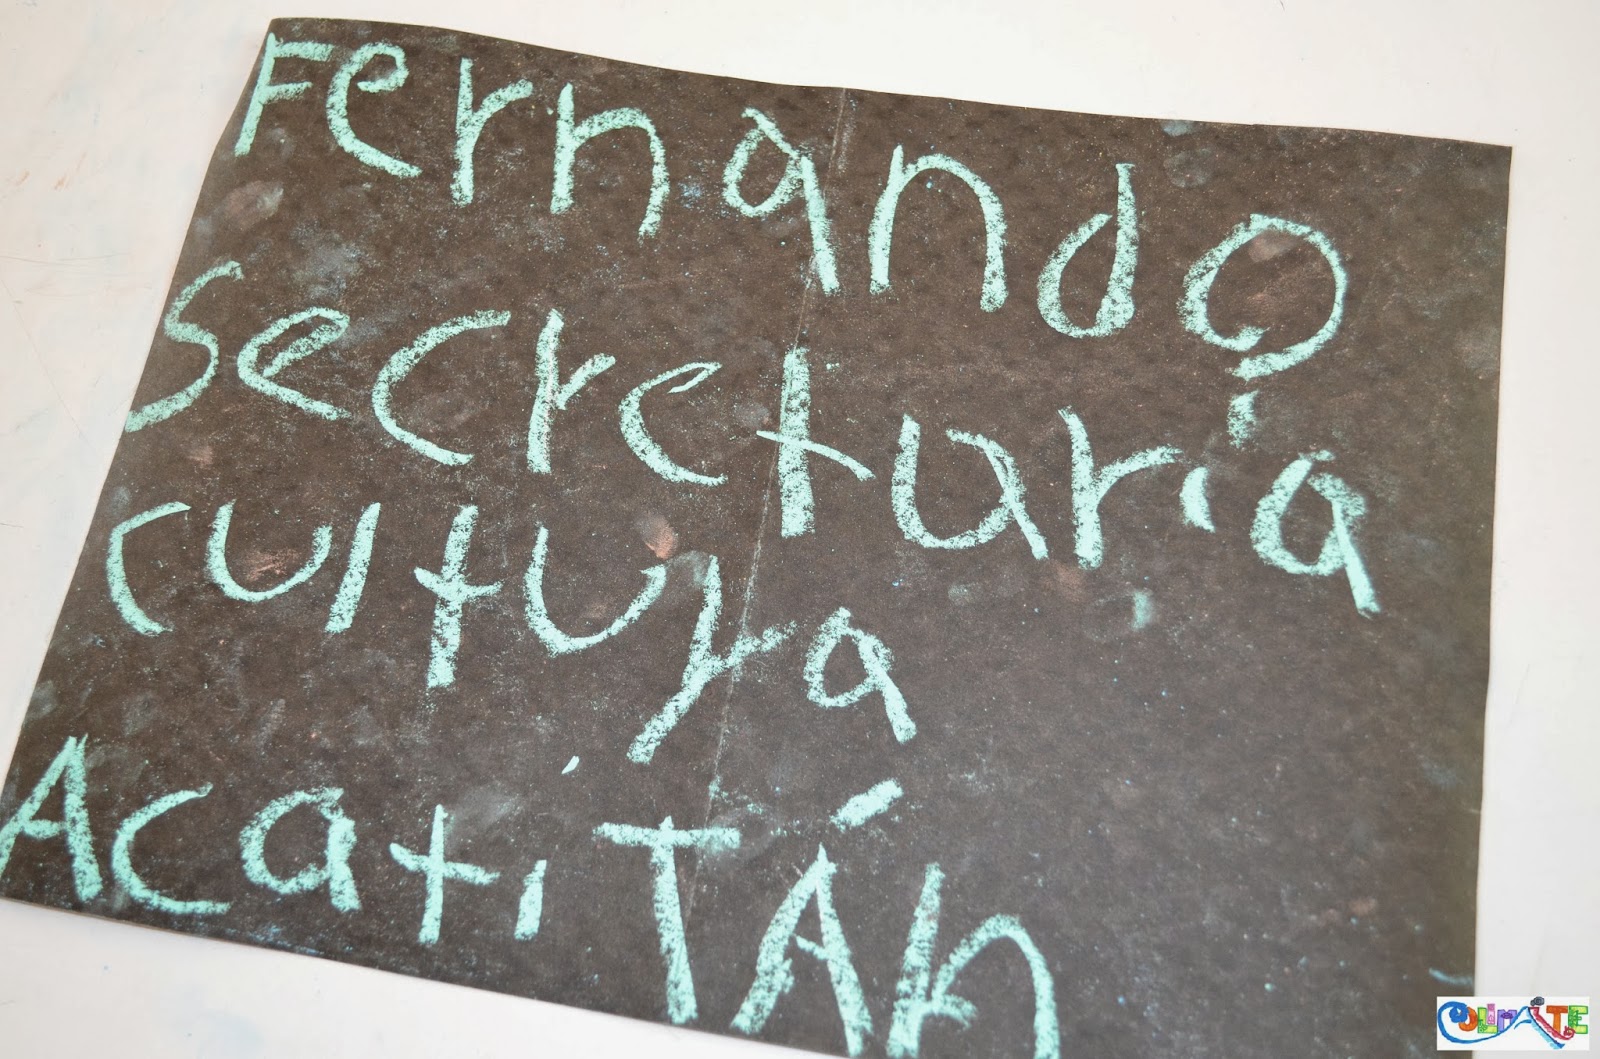 Fernando
Secreturia
cultura
AcatiTÁn
COLIMARTE